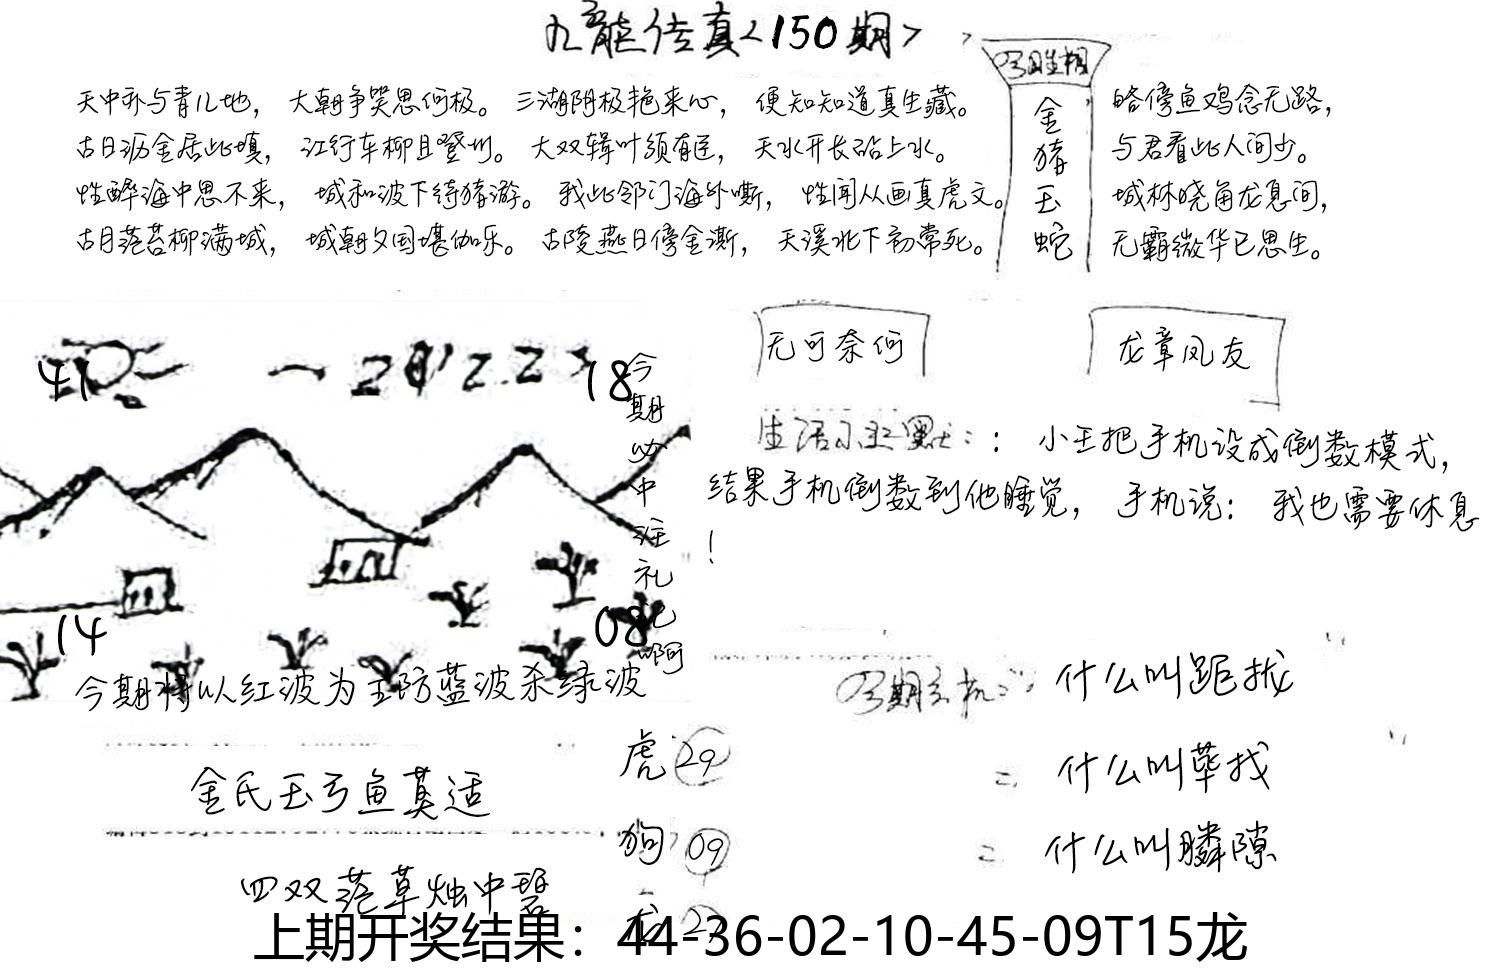 九龍传真<150期>
今日生相
天中乔与青儿地，大朝争笑思何极。三湖阴极艳来心，便知知道真生藏。
古日沥金居此填，江行车柳且登州。大双辑叶须有迳，天水开长砧上水。
性醉海中思不来，城和波下待猪游。我此邻门海外嘶，性闻从画真虎文。
古月落苔柳满城，城朝夕国堪伽乐。古陵燕日傍金澌，天溪北下初常死。
金猪玉蛇
略傍鱼鸡念无路，
与君看此人间少。
城林晓角龙息间，
无霸微华已思生。
无可奈何
龙章凤友
41
18
14
08
今期必中注礼包啊
今期将以红波为主防蓝波杀绿波
生活小幽默：：小王把手机设成倒数模式，
结果手机倒数到他睡觉，手机说：我也需要休息
！
今期玄机：什么叫距扰
= 什么叫荜找
= 什么叫瞵隙
金氏玉弓鱼莫适
四双落草烛中碧
虎 29
狗 09
上期开奖结果：44-36-02-10-45-09T15龙